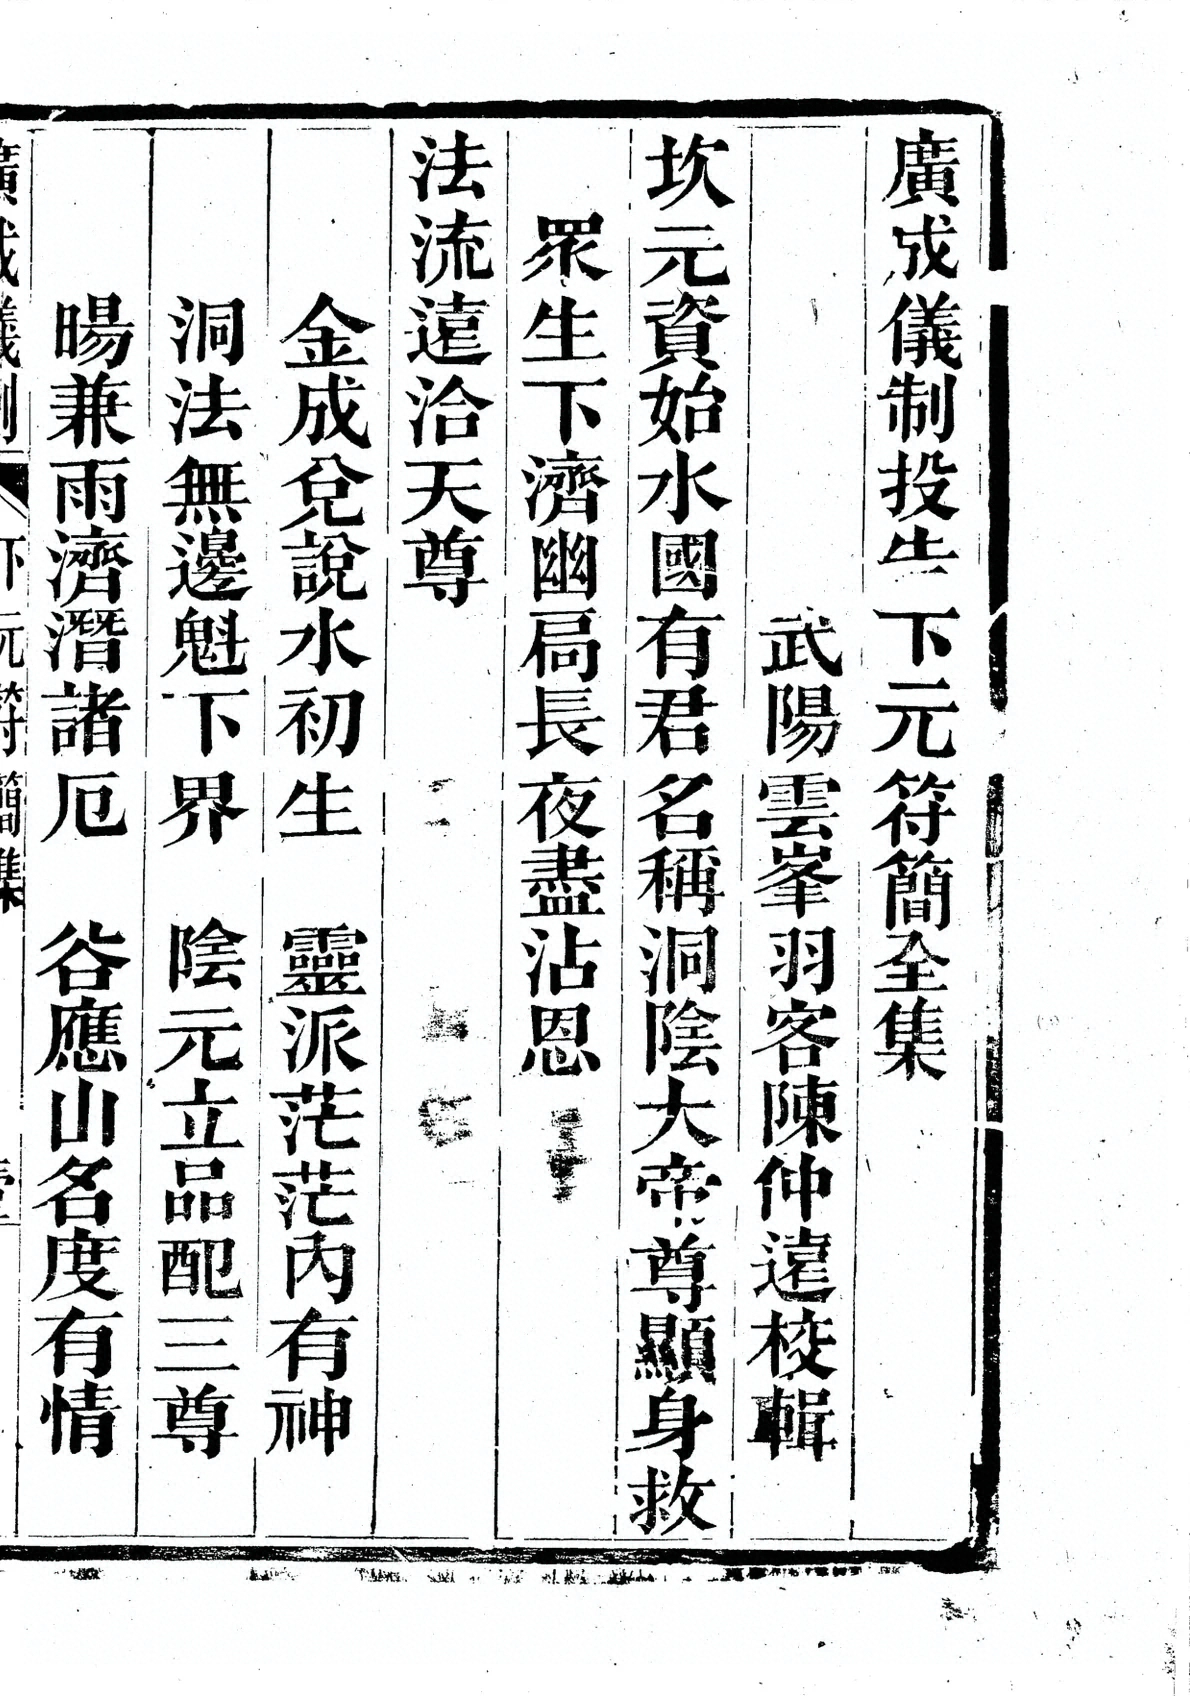 廣成儀制投告下元符簡全集
武陽雲峯羽客陳仲遠校輯
坎元資始水國有君名稱洞陰大帝尊顯身救
眾生下濟幽局長夜盡沾恩
法流遠洽天尊
金成兌說水初生　靈派茫茫內有神
洞法無邊魁下界　陰元立品配三尊
暘兼雨濟潛諸厄　谷應山名度有情
廣成儀制　下元符簡集　壹